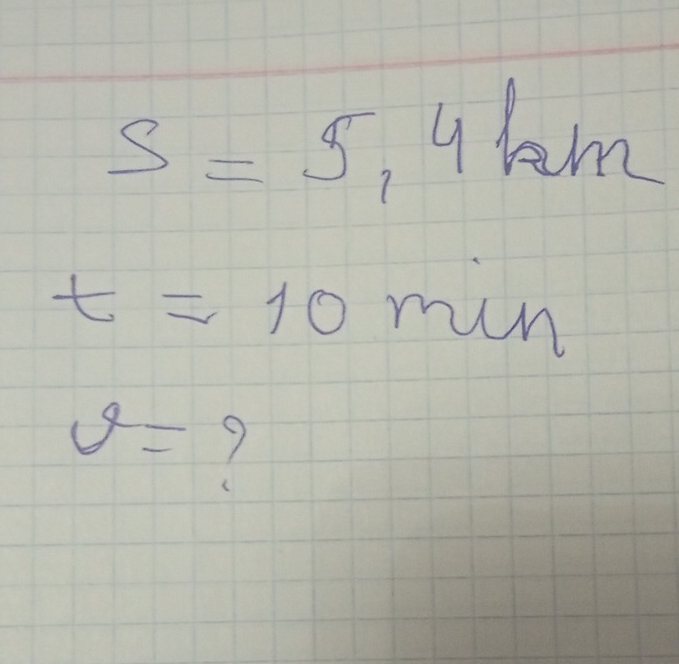 S = 5,4 km
t = 10 min
v = ?